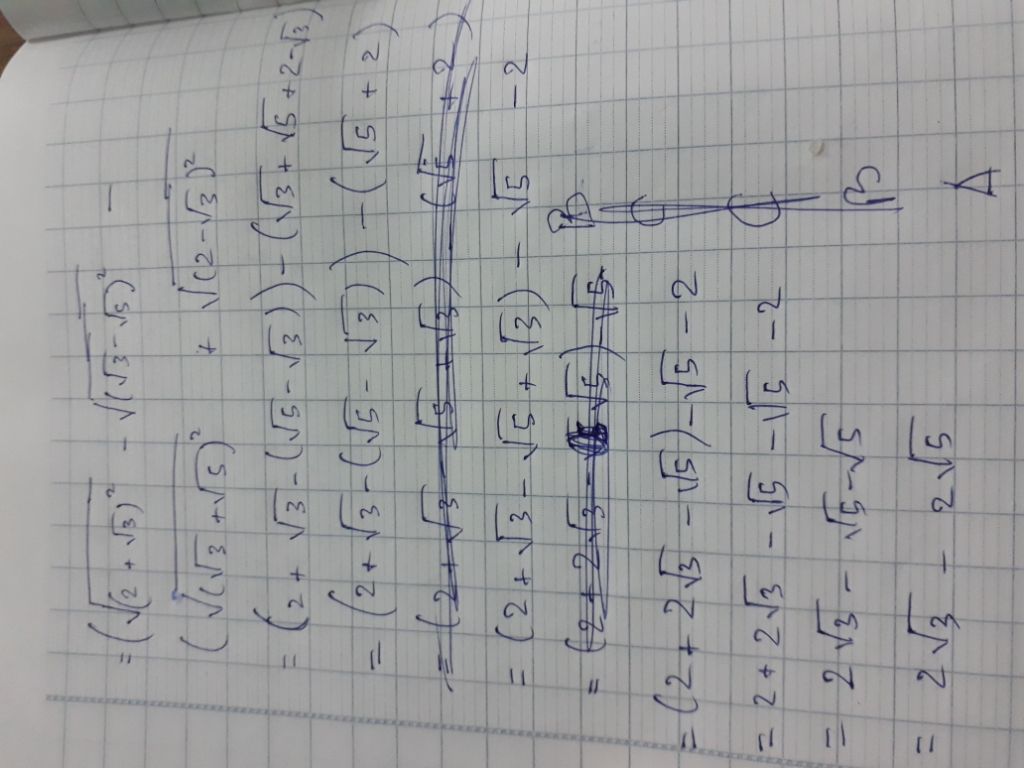 = (√(2 + √3)² - √(√3 - √5)² -
(√(√3 + √5)² + √(2 - √3)²
= (2 + √3 - (√5 - √3)) - (√3 + √5 + 2 - √3)
= (2 + √3 - (√5 - √3)) - (√5 + 2)
= (2 + √3 - √5 + √3) (√5 + 2)
= (2 + √3 - √5 + √3) - √5 - 2
= (2 + 2√3 - √5) - √5
= (2 + 2√3 - √5) - √5 - 2
= 2 + 2√3 - √5 - √5 - 2
= 2√3 - √5 - √5
= 2√3 - 2√5